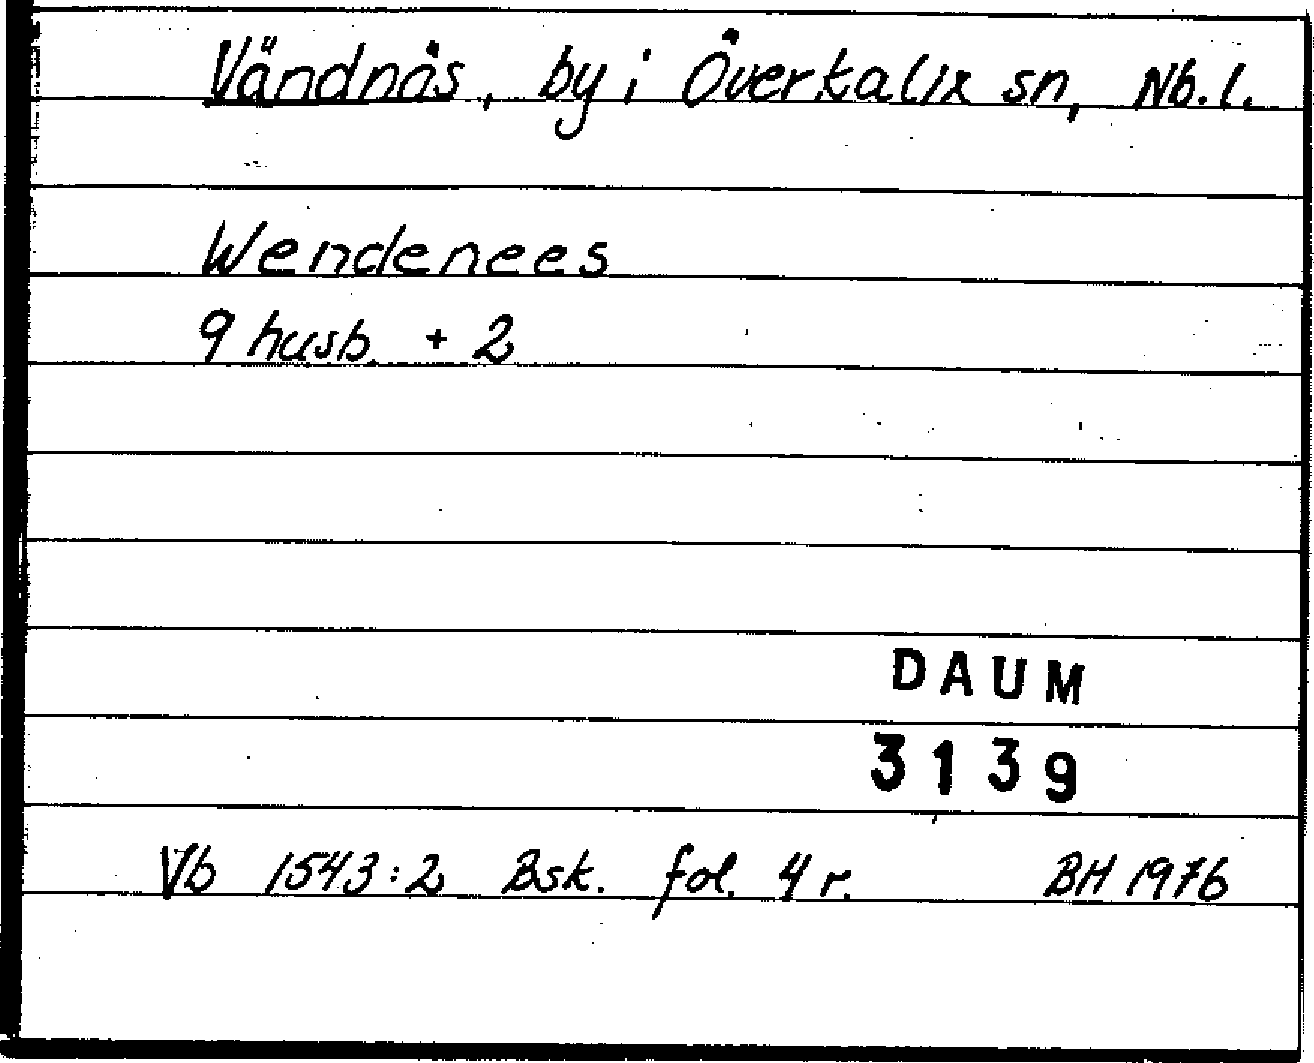 Vändnäs, by i Överkalix sn, Nb. l.
Wendenees
9 husb. + 2
DAUM
3139
Vb 1543:2 Bsk. fol. 4 r. BH 1976